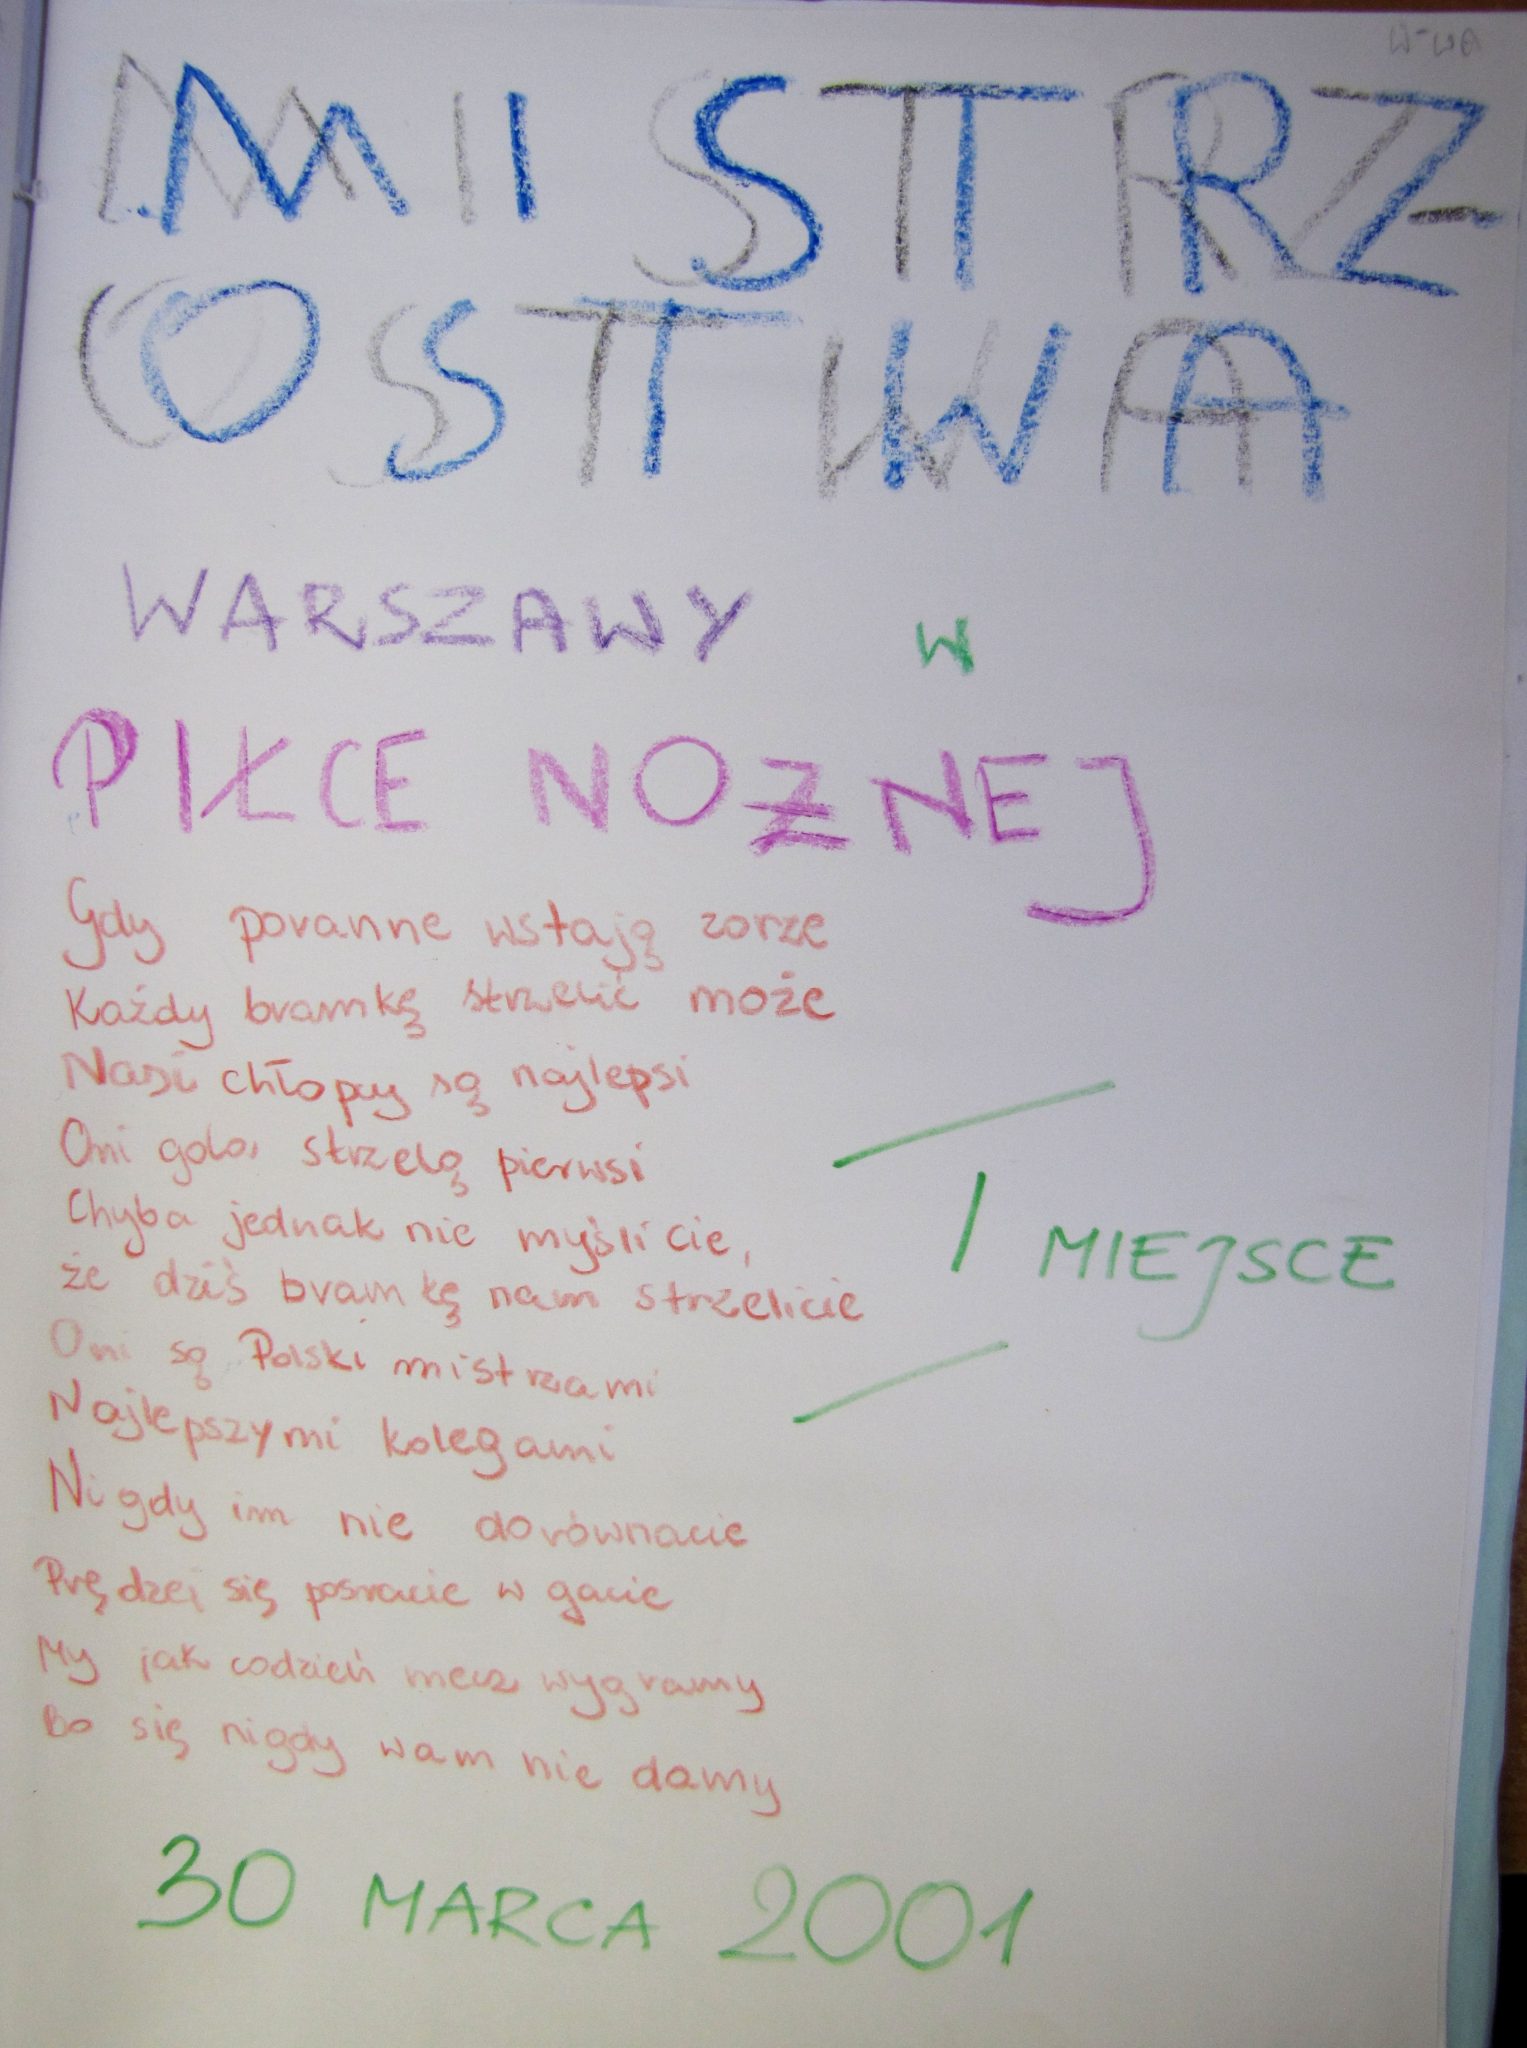 W-WA
MISTRZ-
OSTWA
WARSZAWY W
PIŁCE NOŻNEJ
Gdy poranne wstają zorze
Każdy bramkę strzelić może
Nasi chłopcy są najlepsi
Oni gola strzelą pierwsi
Chyba jednak nie myślicie,
że dziś bramkę nam strzelicie
I MIEJSCE
Oni są Polski mistrzami
Najlepszymi kolegami
Nigdy im nie dorównacie
Prędzej się posracie w gacie
My jak codzień mecz wygramy
Bo się nigdy wam nie damy
30 MARCA 2001